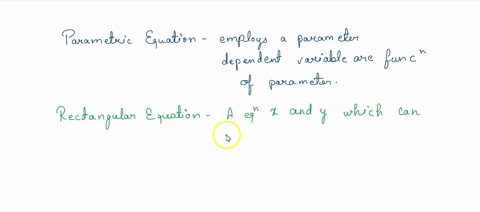 Parametric Equation - employs a parameter
dependent variable are funcⁿ
of parameter.
Rectangular Equation - A eqⁿ x and y which can